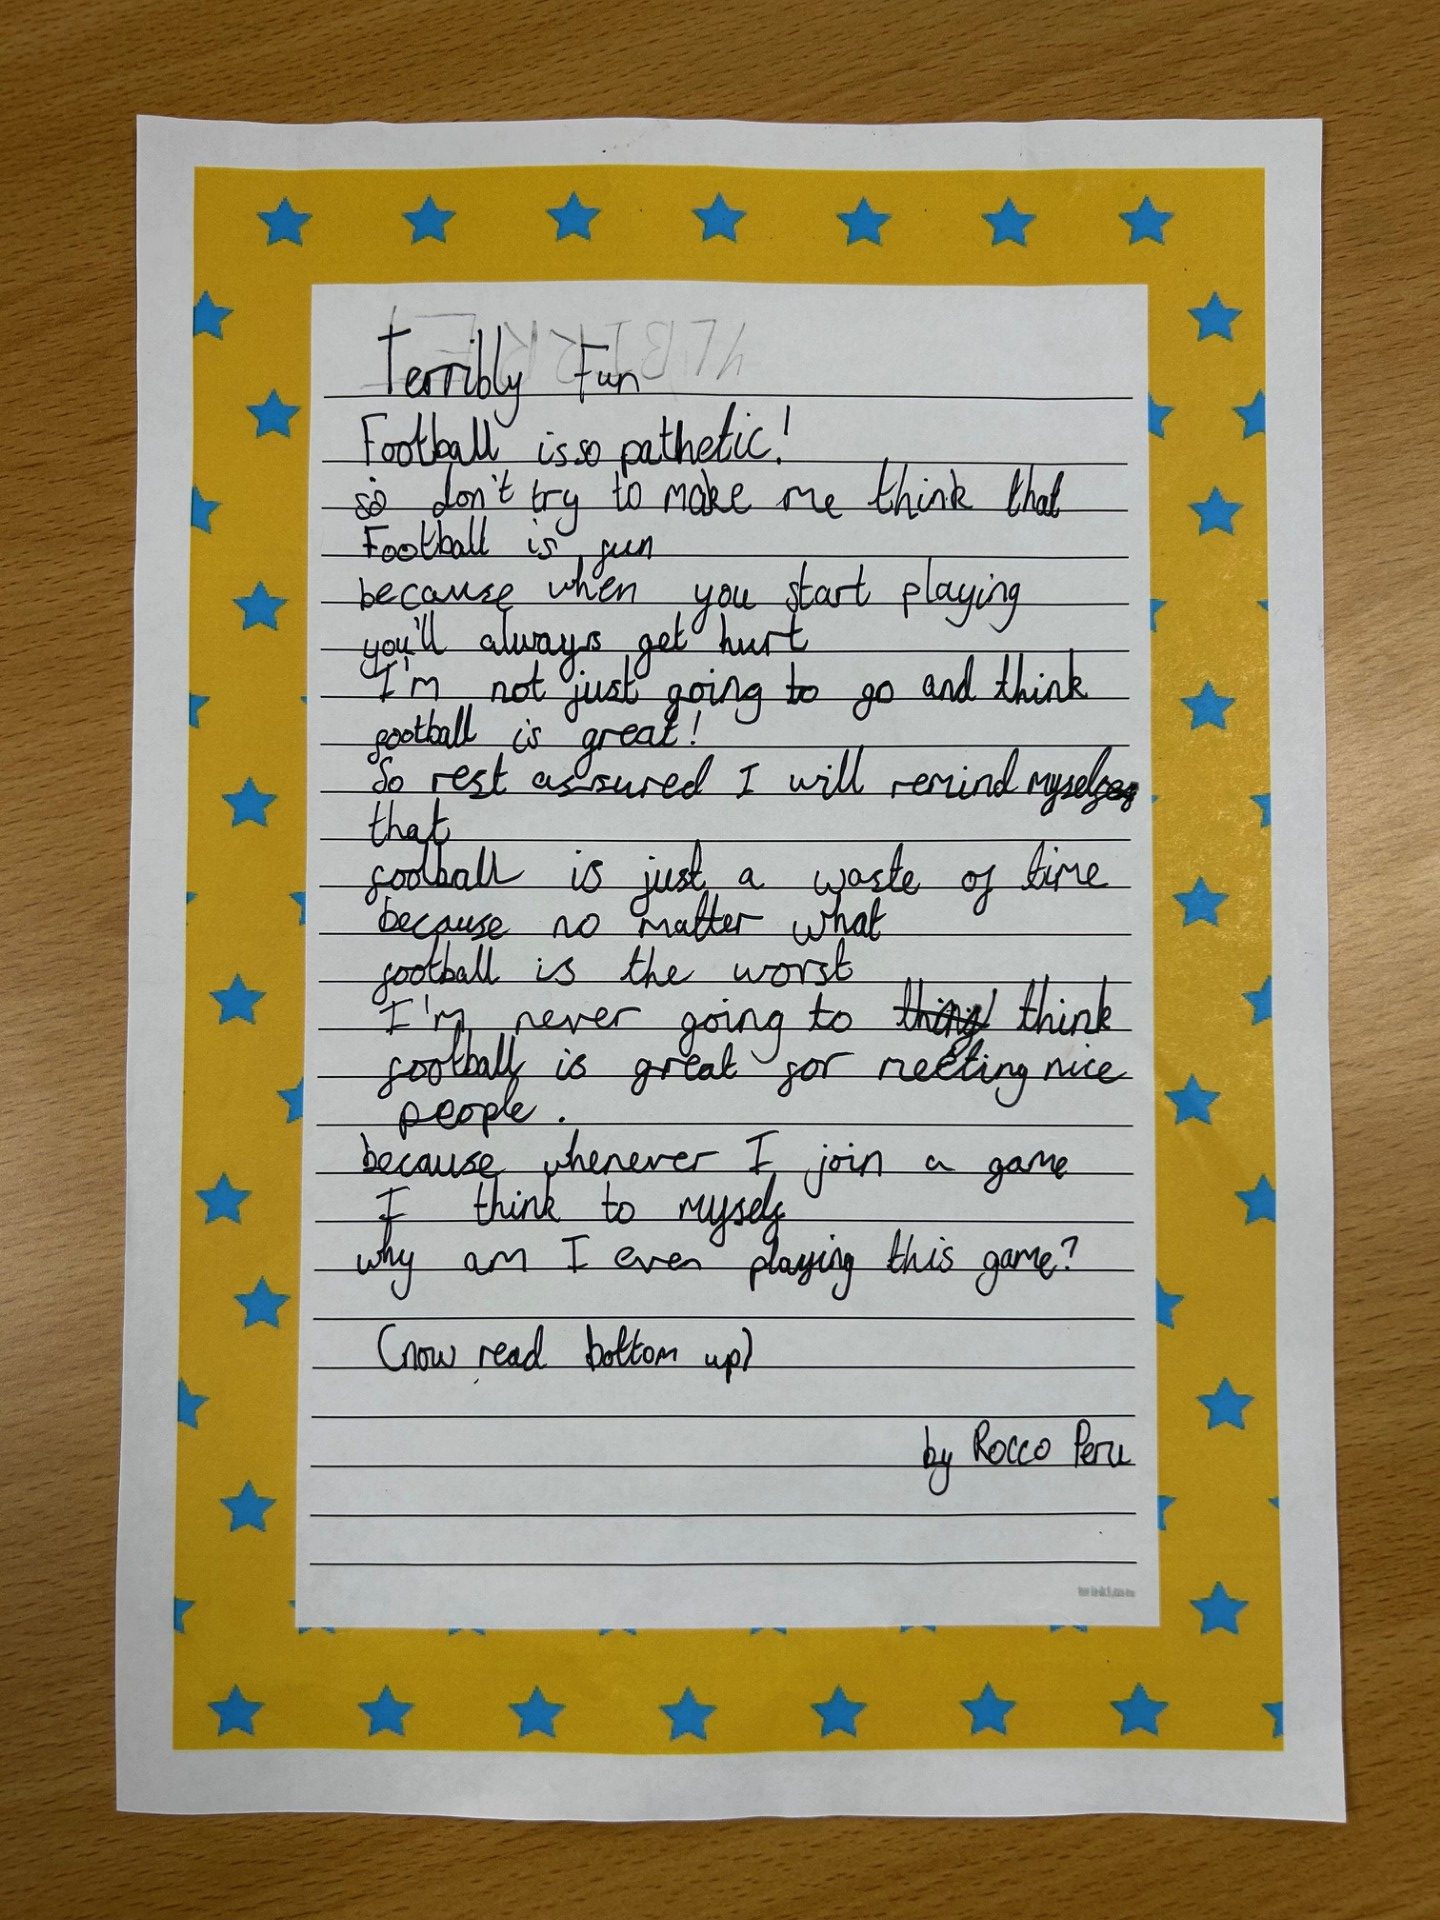 Terribly Fun
Football is so pathetic!
so don't try to make me think that
Football is fun
because when you start playing
you'll always get hurt
I'm not just going to go and think
football is great!
So rest assured I will remind myself
that
football is just a waste of time
because no matter what
football is the worst
I'm never going to think
football is great for meeting nice
people.
because whenever I join a game
I think to myself
why am I even playing this game?
(now read bottom up)
by Rocco Peru